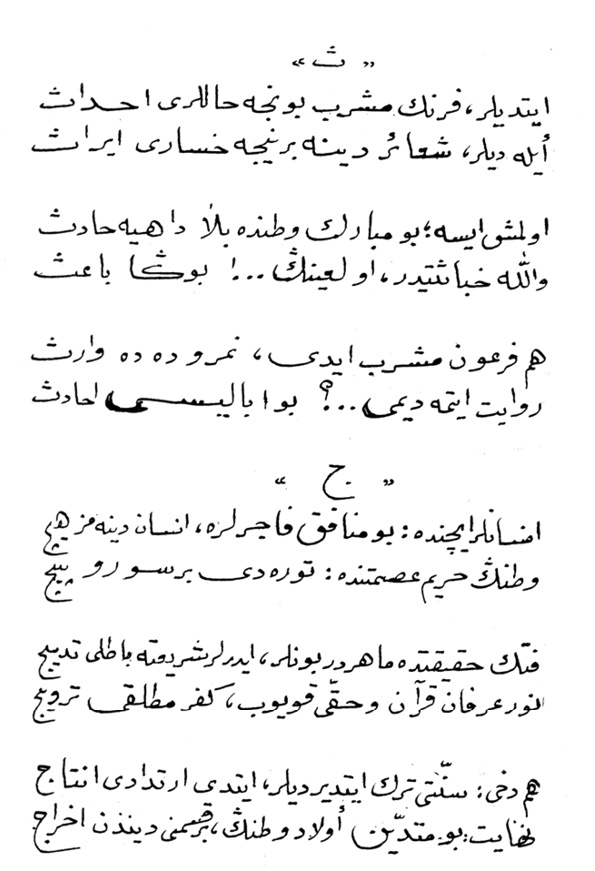 « ث »
ايتديلر، فرنك مشرب بونجه حاللرى احداث
أيله ديلر، شعائر دينه برنيجه خسارى ايراث
اولمش ايسه؛ بو مبارك وطنده بلا داهيه حادث
والله خباثتيدر، او لعينڭ ...! بوڭا باعث
هم فرعون مشرب ايدى، نمرو ده ده وارث
روايت ايتمه ديمى ...؟ بو اباليسى احادث
« ج »
انسانلر ايچنده: بو منافق فاجرلره، انسان دينه مز هيچ
وطنڭ حريم عصمتنده: توره دى بر سورو پيچ
فتك حقيقتده ماهردر بونلر، ايدرلر شريعته باطلى تدبيج
نور عرفان قرآن و حقّى قويوب، كفر مطلقى ترويج
هم دخى: سنّتى ترك ايتديرديلر، ايتدى ارتدادى انتاج
نهايت: بو متديّن أولاد وطنڭ، بر قسمنى ديندن اخراج